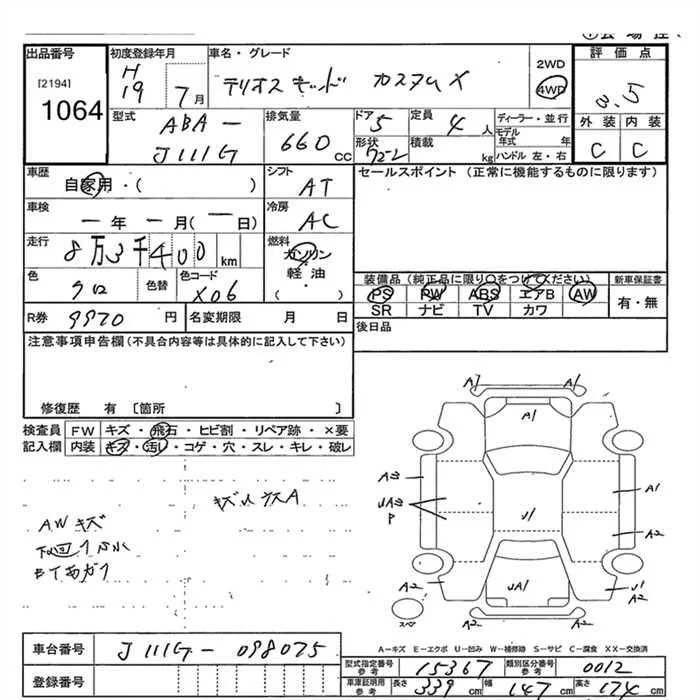 出品番号
[2194]
1064
初度登録年月
H
19 7月
車名・グレード
テリオスキッド カスタムX
2WD
4WD
評価点
3.5
外装 内装
C C
型式
ABA-
J111G
排気量
660 cc
ドア 5
形状
定員 4人
積載 kg
ディーラー・並行
モデル年式 年
ハンドル 左・右
車歴
自家用・( )
シフト
AT
セールスポイント (正常に機能するものに限ります)
車検
一年 一月(一日)
冷房
AC
走行
8万3千400km
燃料
ガソリン
軽油
( )
色
クロ
色替
色コード
X06
装備品 (純正品に限り○をつけてください)
PS PW ABS エアB AW
SR ナビ TV カワ
新車保証書
有・無
R券 9920円
名変期限 月 日
後日品
注意事項申告欄(不具合内容等は具体的に記入して下さい)
修復歴 有 [箇所 ]
検査員 FW キズ・飛石・ヒビ割・リペア跡・×要
記入欄 内装 キズ・汚レ・コゲ・穴・スレ・キレ・破レ
AWキズ
A1 A1
A1
A3
UA3
P
U1
A1
A2
A2
UA1
U1
A2
A2 A2
スペア
A-キズ E-エクボ U-凹み W-補修跡 S-サビ C-腐食 XX-交換済
車台番号 J111G-098075
登録番号
型式指定番号 参考 15367
類別区分番号 参考 0012
車庫証明用 参考 長さ 339cm 幅 147cm 高さ 174cm